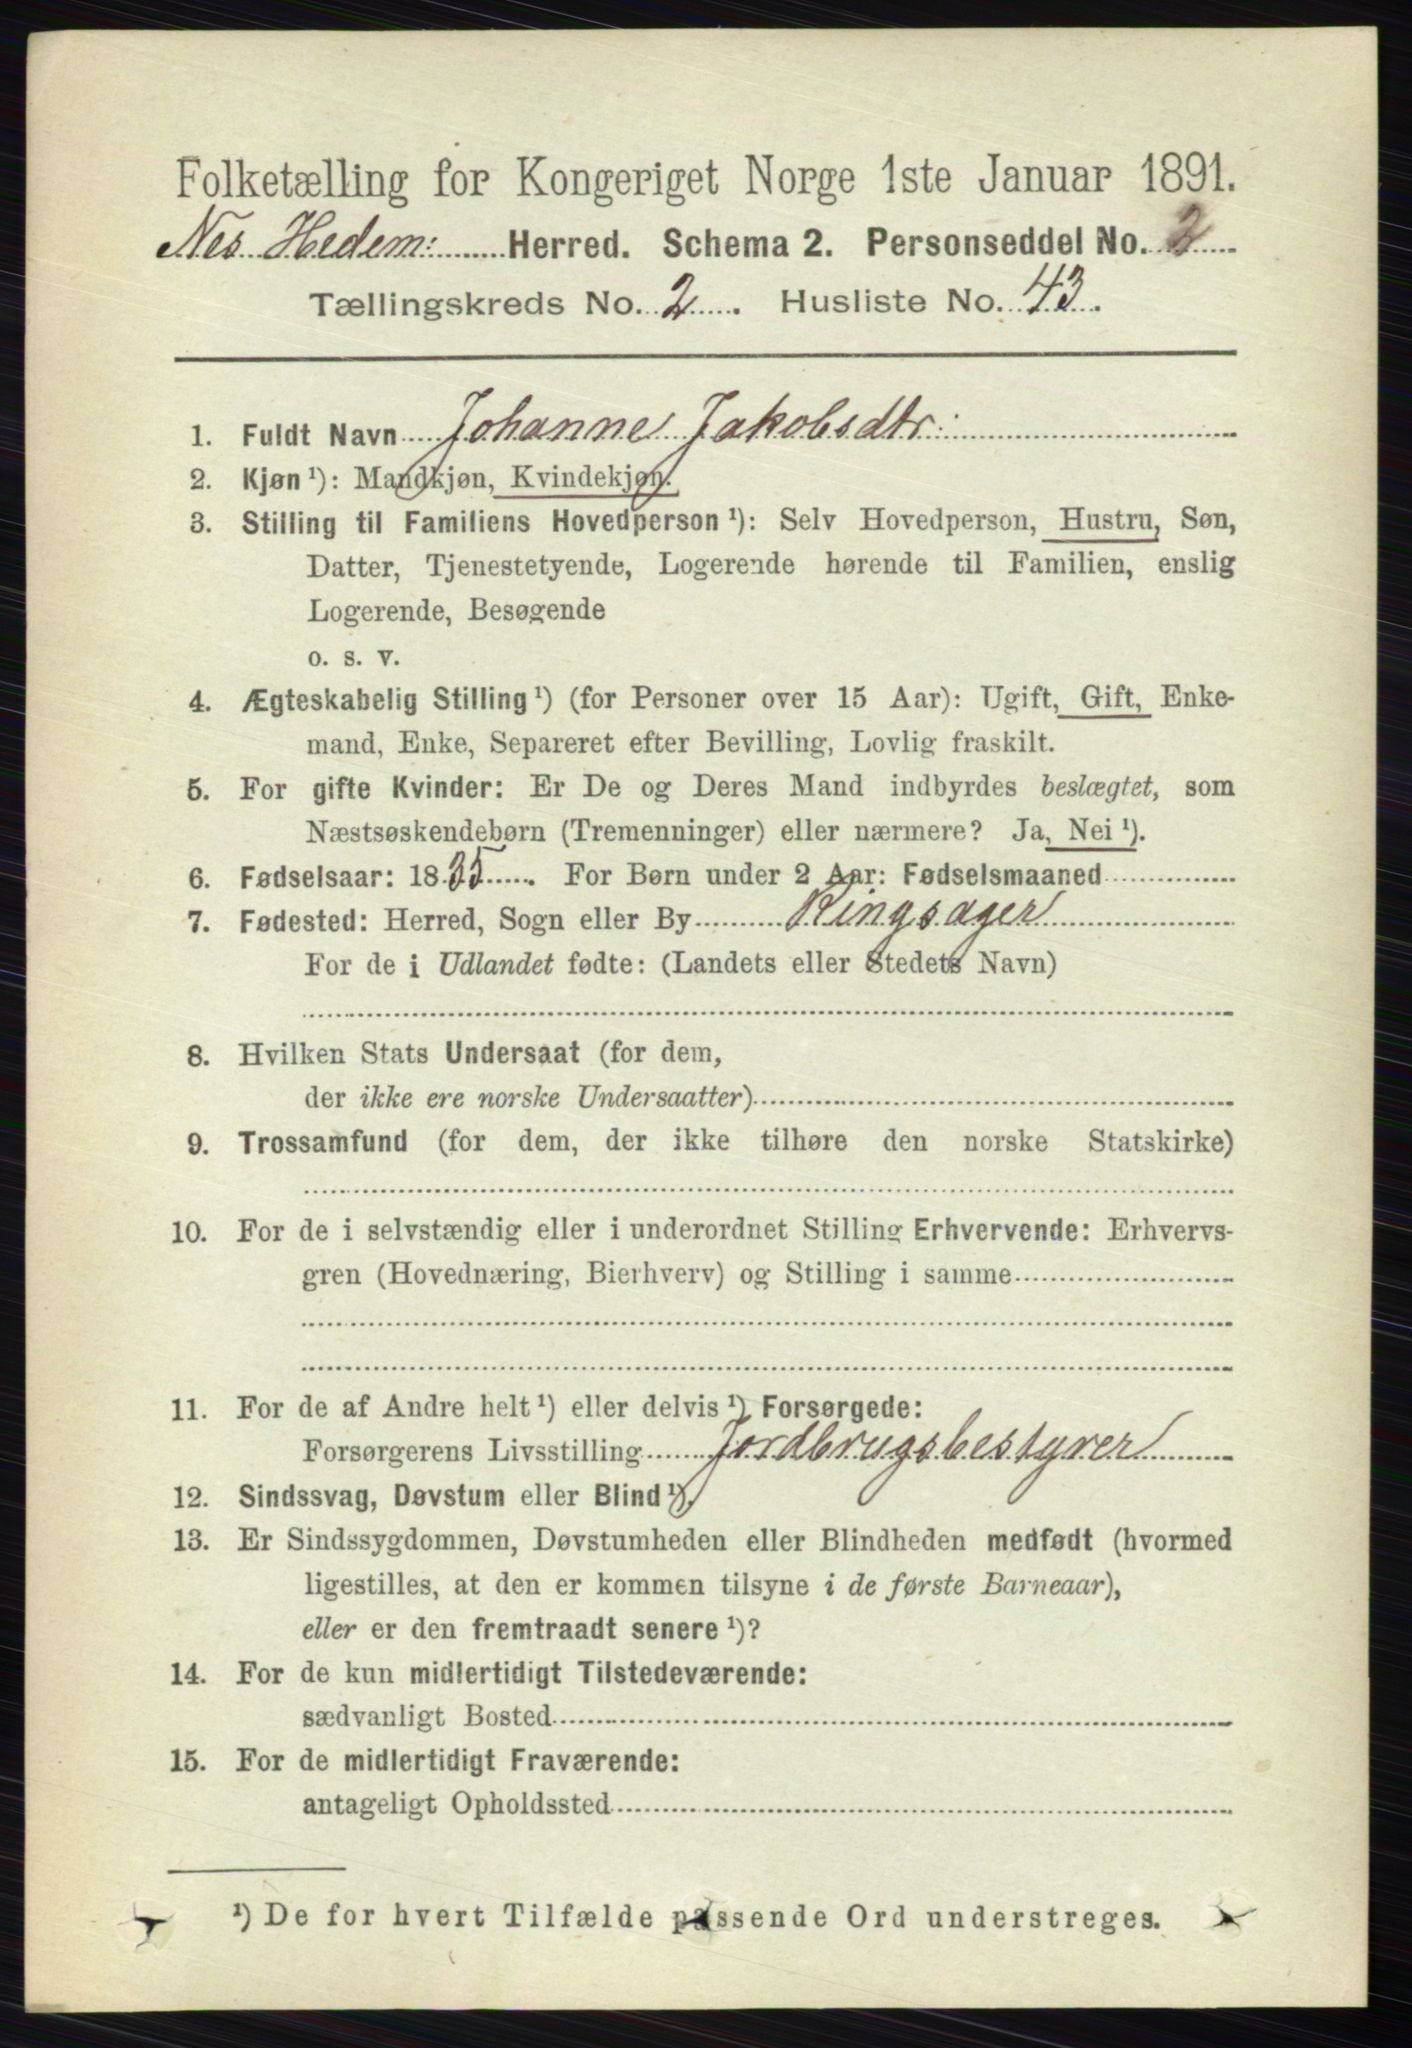 Folketælling for Kongeriget Norge 1ste Januar 1891.
Nes Hedem: Herred. Schema 2. Personseddel No. 2
Tællingskreds No. 2. Husliste No. 43.
1. Fuldt Navn Johanne Jakobsdtr:
2. Kjøn¹): Mandkjøn, Kvindekjøn.
3. Stilling til Familiens Hovedperson¹): Selv Hovedperson, Hustru, Søn,
Datter, Tjenestetyende, Logerende hørende til Familien, enslig
Logerende, Besøgende
o. s. v.
4. Ægteskabelig Stilling¹) (for Personer over 15 Aar): Ugift, Gift, Enke-
mand, Enke, Separeret efter Bevilling, Lovlig fraskilt.
5. For gifte Kvinder: Er De og Deres Mand indbyrdes beslægtet, som
Næstsøskendebørn (Tremenninger) eller nærmere? Ja, Nei¹).
6. Fødselsaar: 1835. For Børn under 2 Aar: Fødselsmaaned
7. Fødested: Herred, Sogn eller By Ringsager
For de i Udlandet fødte: (Landets eller Stedets Navn)
8. Hvilken Stats Undersaat (for dem,
der ikke ere norske Undersaatter)
9. Trossamfund (for dem, der ikke tilhøre den norske Statskirke)
10. For de i selvstændig eller i underordnet Stilling Erhvervende: Erhvervs-
gren (Hovednæring, Bierhverv) og Stilling i samme
11. For de af Andre helt¹) eller delvis¹) Forsørgede:
Forsørgerens Livsstilling Jordbrugsbestyrer
12. Sindssvag, Døvstum eller Blind¹).
13. Er Sindssygdommen, Døvstumheden eller Blindheden medfødt (hvormed
ligestilles, at den er kommen tilsyne i de første Barneaar),
eller er den fremtraadt senere¹)?
14. For de kun midlertidigt Tilstedeværende:
sædvanligt Bosted
15. For de midlertidigt Fraværende:
antageligt Opholdssted
¹) De for hvert Tilfælde passende Ord understreges.